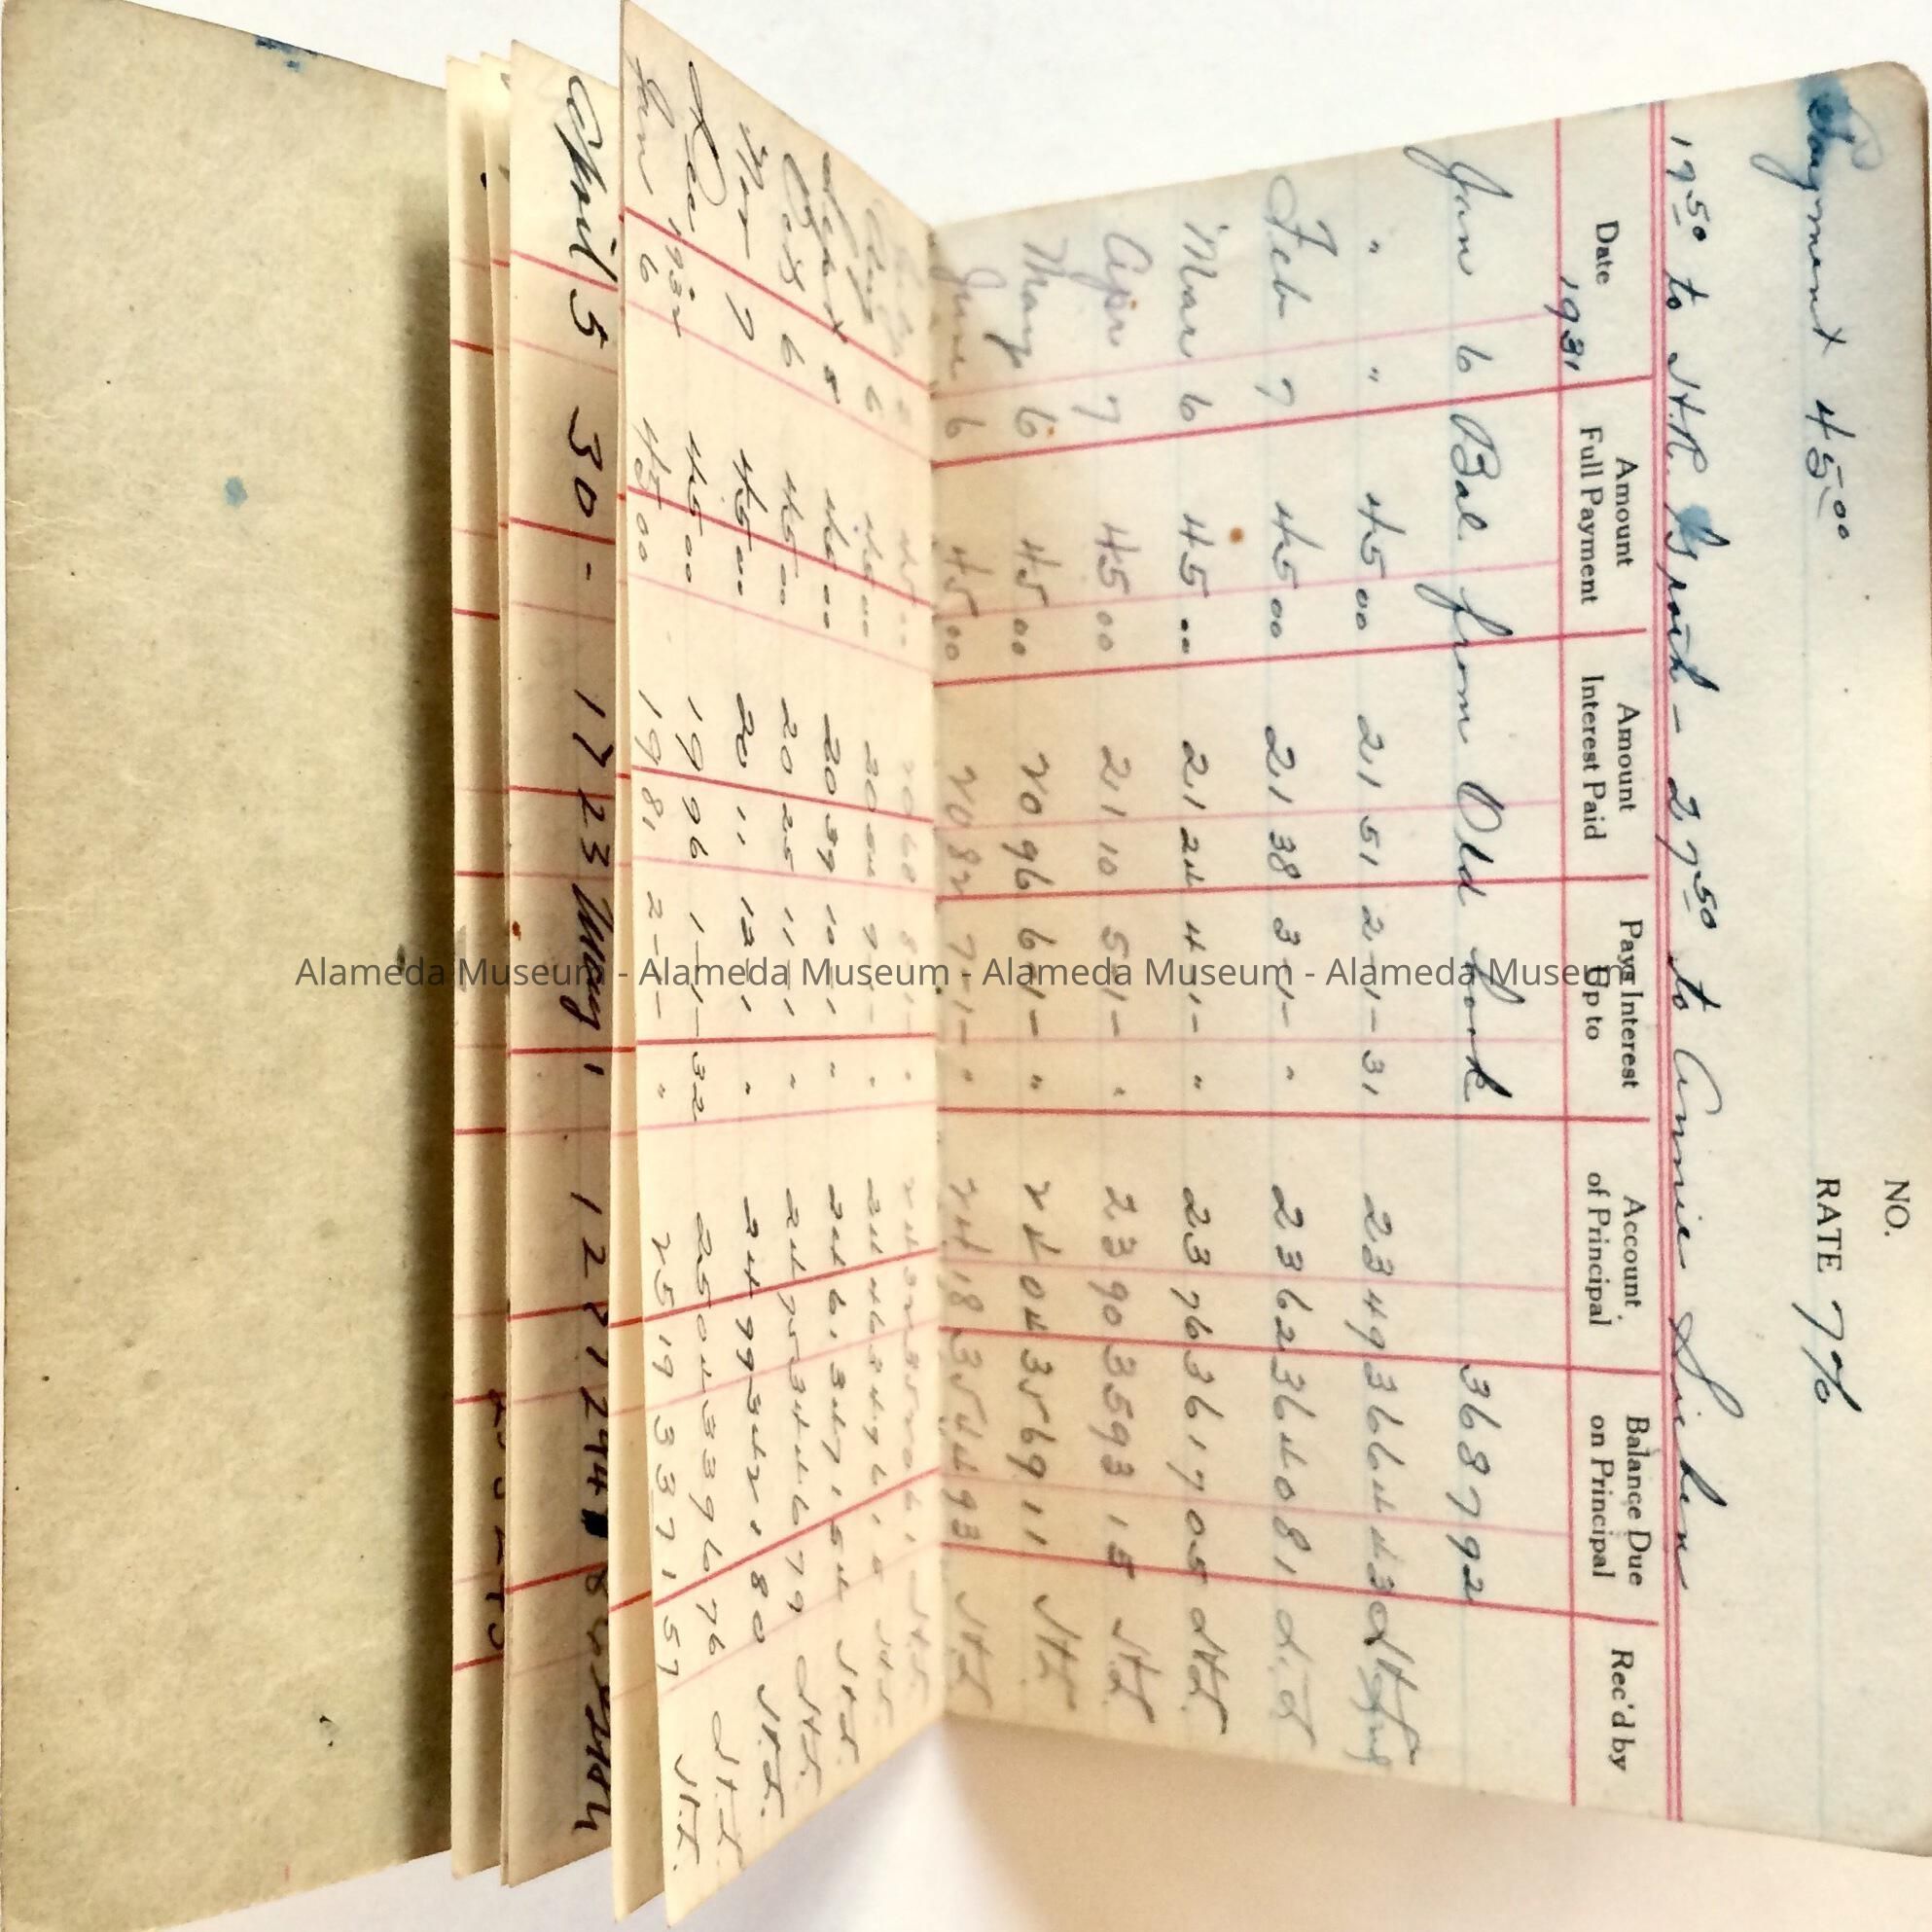 NO.
Payment 45 00 RATE 7%
17 50 to 27 50 to Annie
Date Amount Full Payment Amount Interest Paid Pays Interest Up to Account of Principal Balance Due on Principal Rec'd by
1931
Jan 6 Bal. from Old book 3687 92
" " 45 00 21 51 2-1-31 23 49 3664 43
Feb 7 45 00 21 38 3-1- " 23 62 3640 81
Mar 6 45 00 21 24 4-1- " 23 76 3617 05
Apr 7 45 00 21 10 5-1- " 23 90 3593 15
May 6 45 00 20 96 6-1- " 24 04 3569 11
June 6 45 00 20 82 7-1- " 24 18 3544 93
45 00 20 68 8-1- " 24 32 3520 61
Aug 6 45 00 20 54 9-1- " 24 46 3496 15
Sept 8 45 00 20 39 10-1 " 24 61 3471 54
Oct 6 45 00 20 25 11-1 " 24 75 3446 79
Nov 7 45 00 20 11 12-1 " 24 99 3421 80
Dec 45 00 19 96 1-1-32 25 04 3396 76
1932
Jan 6 45 00 19 81 2-1- " 25 19 3371 57
April 5 30 - 17 23 May 1 12
Alameda Museum - Alameda Museum - Alameda Museum - Alameda Museum